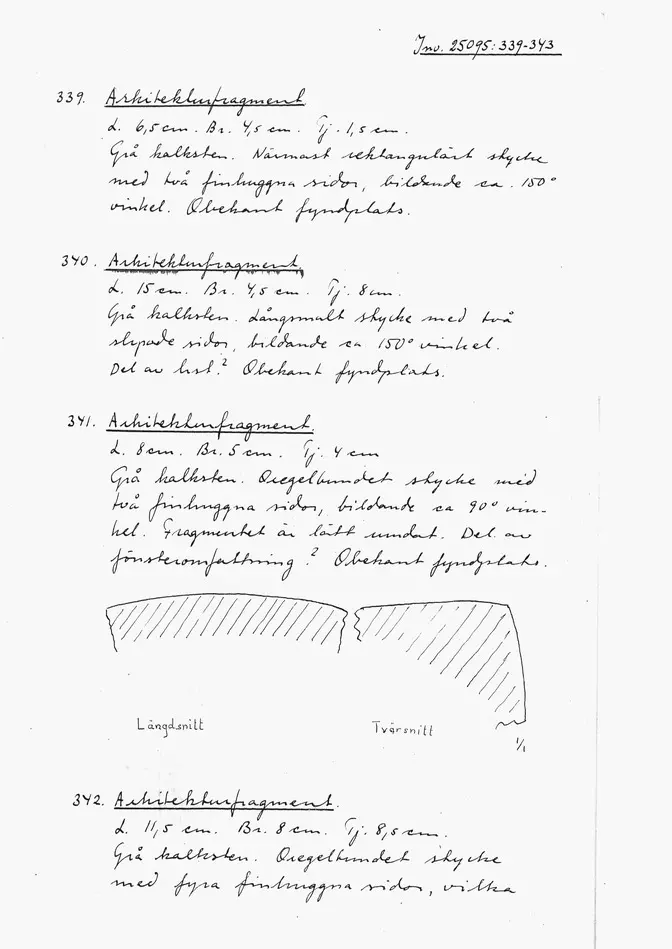 Inv. 25095:339-343
339. Arkitekturfragment.
L. 6,5 cm. Br. 4,5 cm. Tj. 1,5 cm.
Grå kalksten. Närmast rektangulärt stycke
med två finhuggna sidor, bildande ca. 150°
vinkel. Obekant fyndplats.
340. Arkitekturfragment.
L. 15 cm. Br. 4,5 cm. Tj. 8 cm.
Grå kalksten. Långsmalt stycke med två
slipade sidor, bildande ca 150° vinkel.
Del av list? Obekant fyndplats.
341. Arkitekturfragment.
L. 8 cm. Br. 5 cm. Tj. 4 cm
Grå kalksten. Oregelbundet stycke med
två finhuggna sidor, bildande ca 90° vin-
kel. Fragmentet är lätt rundat. Del av
fönsteromfattning? Obekant fyndplats.
Längdsnitt
Tvärsnitt
1/1
342. Arkitekturfragment.
L. 11,5 cm. Br. 8 cm. Tj. 8,5 cm.
Grå kalksten. Oregelbundet stycke
med fyra finhuggna sidor, vilka